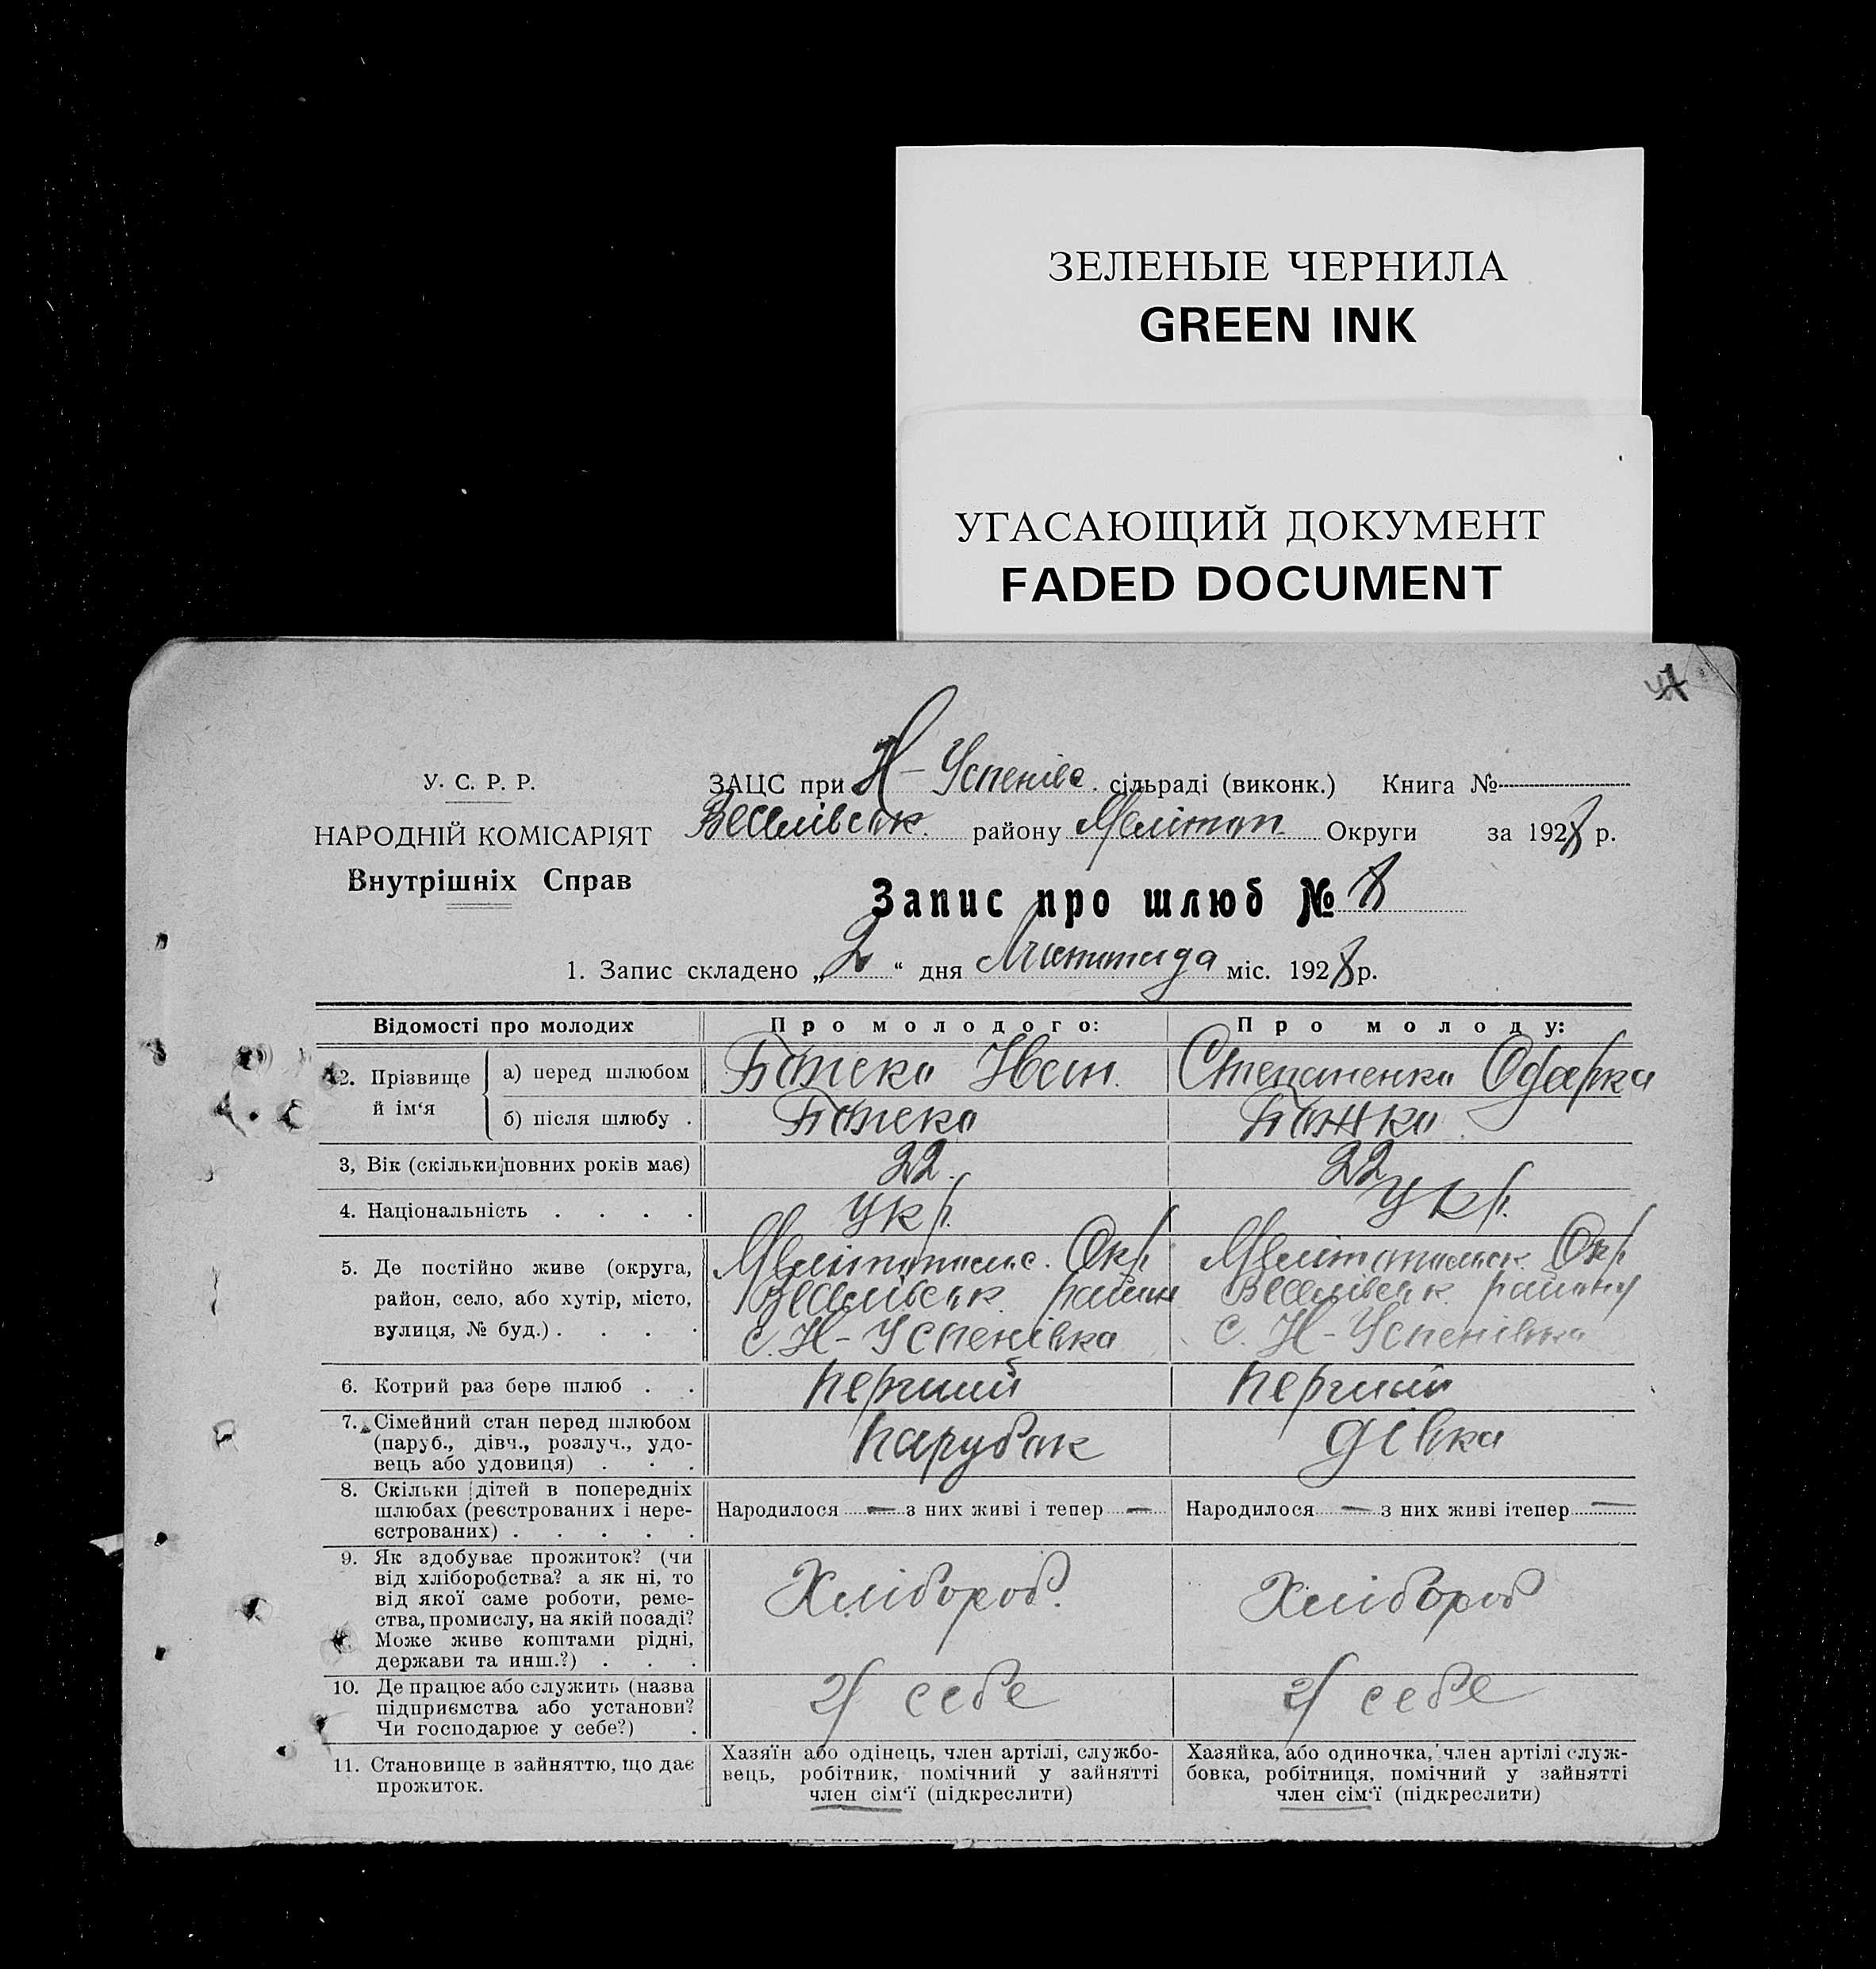 ЗЕЛЕНЫЕ ЧЕРНИЛА
GREEN INK
УГАСАЮЩИЙ ДОКУМЕНТ
FADED DOCUMENT
У. С. Р. Р.
НАРОДНІЙ КОМІСАРІЯТ
Внутрішніх Справ
ЗАЦС при Н-Успенівс. сільраді (виконк.) Книга №
Веселівськ. району Меліт. Округи за 1928 р.
Запис про шлюб № 8
1. Запис складено „2“ дня Листопада міс. 1928 р.
Відомості про молодих
Про молодого:
Про молоду:
2. Прізвище й ім‘я
а) перед шлюбом
Божко Іван.
Степаненко Одарка
б) після шлюбу .
Божко
Божко
3, Вік (скільки повних років має)
22.
22
4. Національність . . . .
Укр.
Укр.
5. Де постійно живе (округа,
район, село, або хутір, місто,
вулиця, № буд.) . . . .
Мелітопільс. Окр.
Веселівськ. район
с. Н-Успенівка
Мелітопільськ. Окр.
Веселівськ. району
с. Н-Успенівка
6. Котрий раз бере шлюб . .
перший
перший
7. Сімейний стан перед шлюбом
(паруб., дівч., розлуч., удо-
вець або удовиця) . . .
парубок
дівка
8. Скільки дітей в попередніх
шлюбах (реєстрованих і нере-
єстрованих) . . . . .
Народилося — з них живі і тепер —
Народилося — з них живі ітепер —
9. Як здобуває прожиток? (чи
від хліборобства? а як ні, то
від якої саме роботи, реме-
ства, промислу, на якій посаді?
Може живе коштами рідні,
держави та инш.?) . . .
Хлібороб.
Хлібороб
10. Де працює або служить (назва
підприємства або установи?
Чи господарює у себе?) .
у себе
у себе
11. Становище в зайняттю, що дає
прожиток.
Хазяїн або одінець, член артілі, службо-
вець, робітник, помічний у зайнятті
член сім‘ї (підкреслити)
Хазяйка, або одиночка, член артілі служ-
бовка, робітниця, помічний у зайнятті
член сім‘ї (підкреслити)